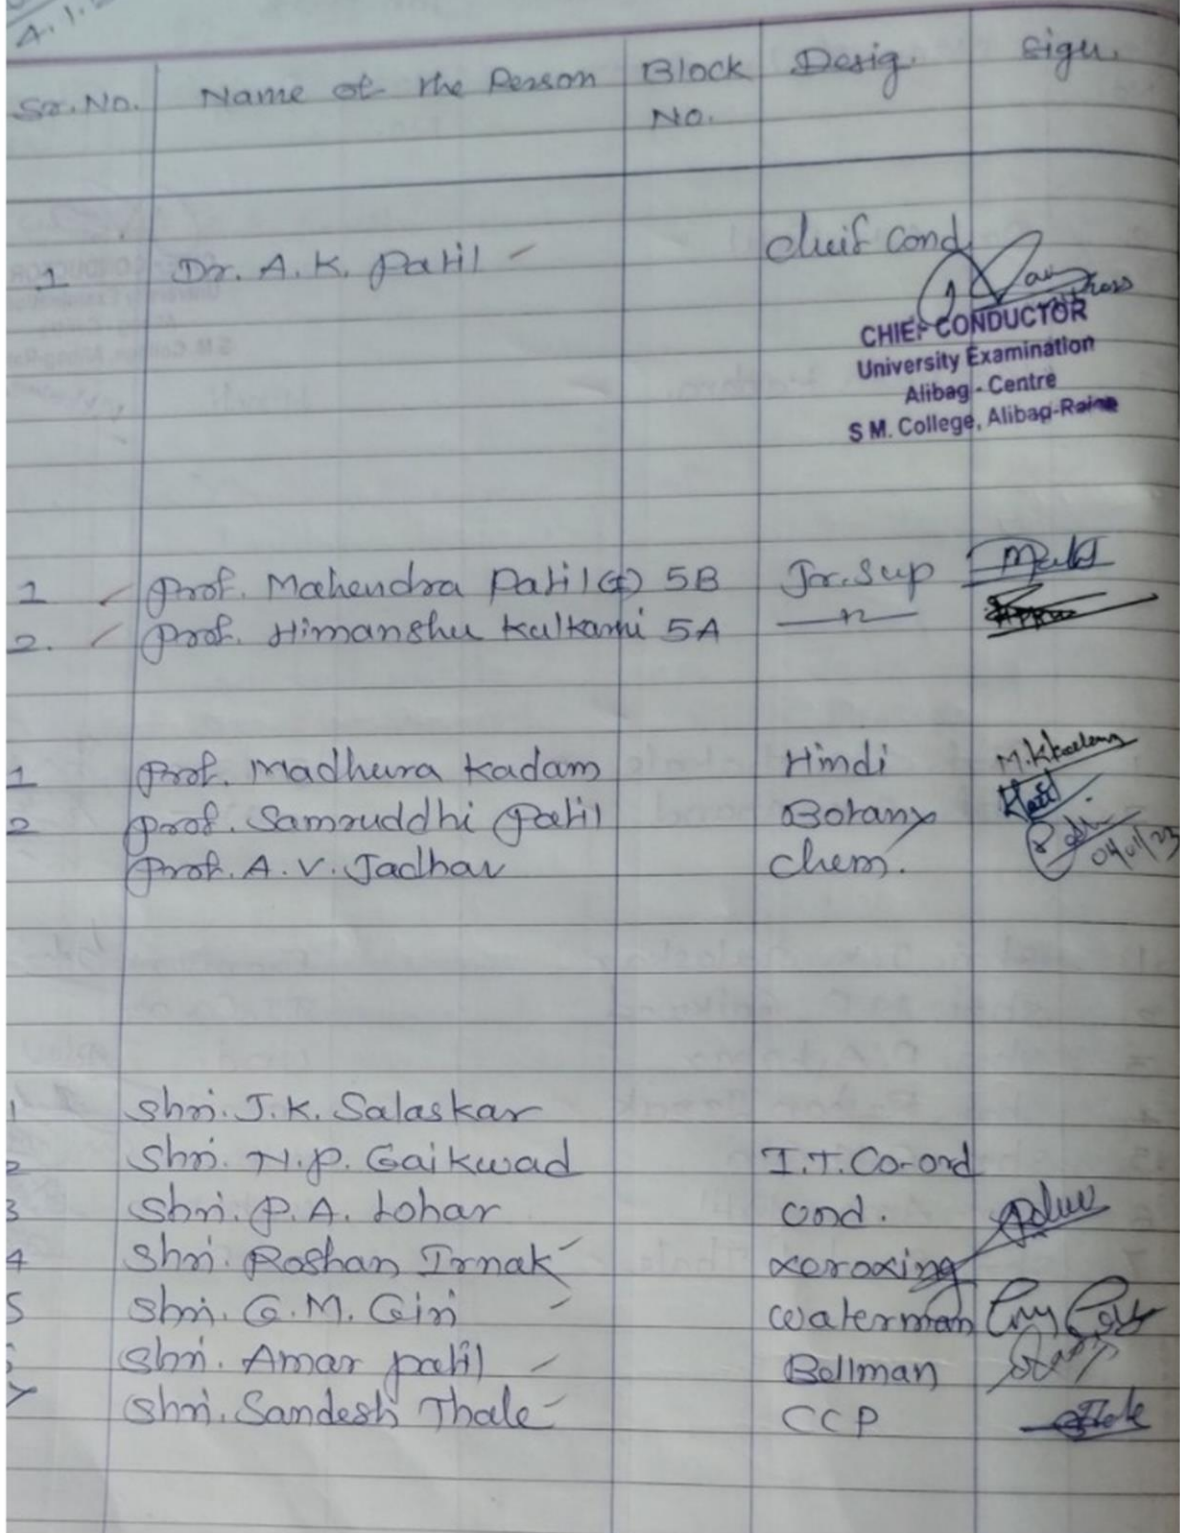 4.1.
Sr.No. Name of the Person Block No. Desig. Sign.
1 Dr. A.K. Patil - Chief Cond
CHIEF CONDUCTOR
University Examination
Alibag - Centre
S M. College, Alibag-
1 Prof. Mahendra Patil (G) 5B Jr.Sup
2. Prof. Himanshu Kulkarni 5A —n—
1 Prof. Madhura Kadam Hindi
2 Prof. Samruddhi Patil Botany
Prof. A.V. Jadhav Chem.
04/01/23
1 Shri. J.K. Salaskar
2 Shri. N.P. Gaikwad I.T.Co-ord
3 Shri. P.A. Lohar Cond.
4 Shri. Roshan Irnak xeroxing
5 Shri. G.M. Giri Waterman
Shri. Amar Patil Bellman
7 Shri. Sandesh Thale CCP